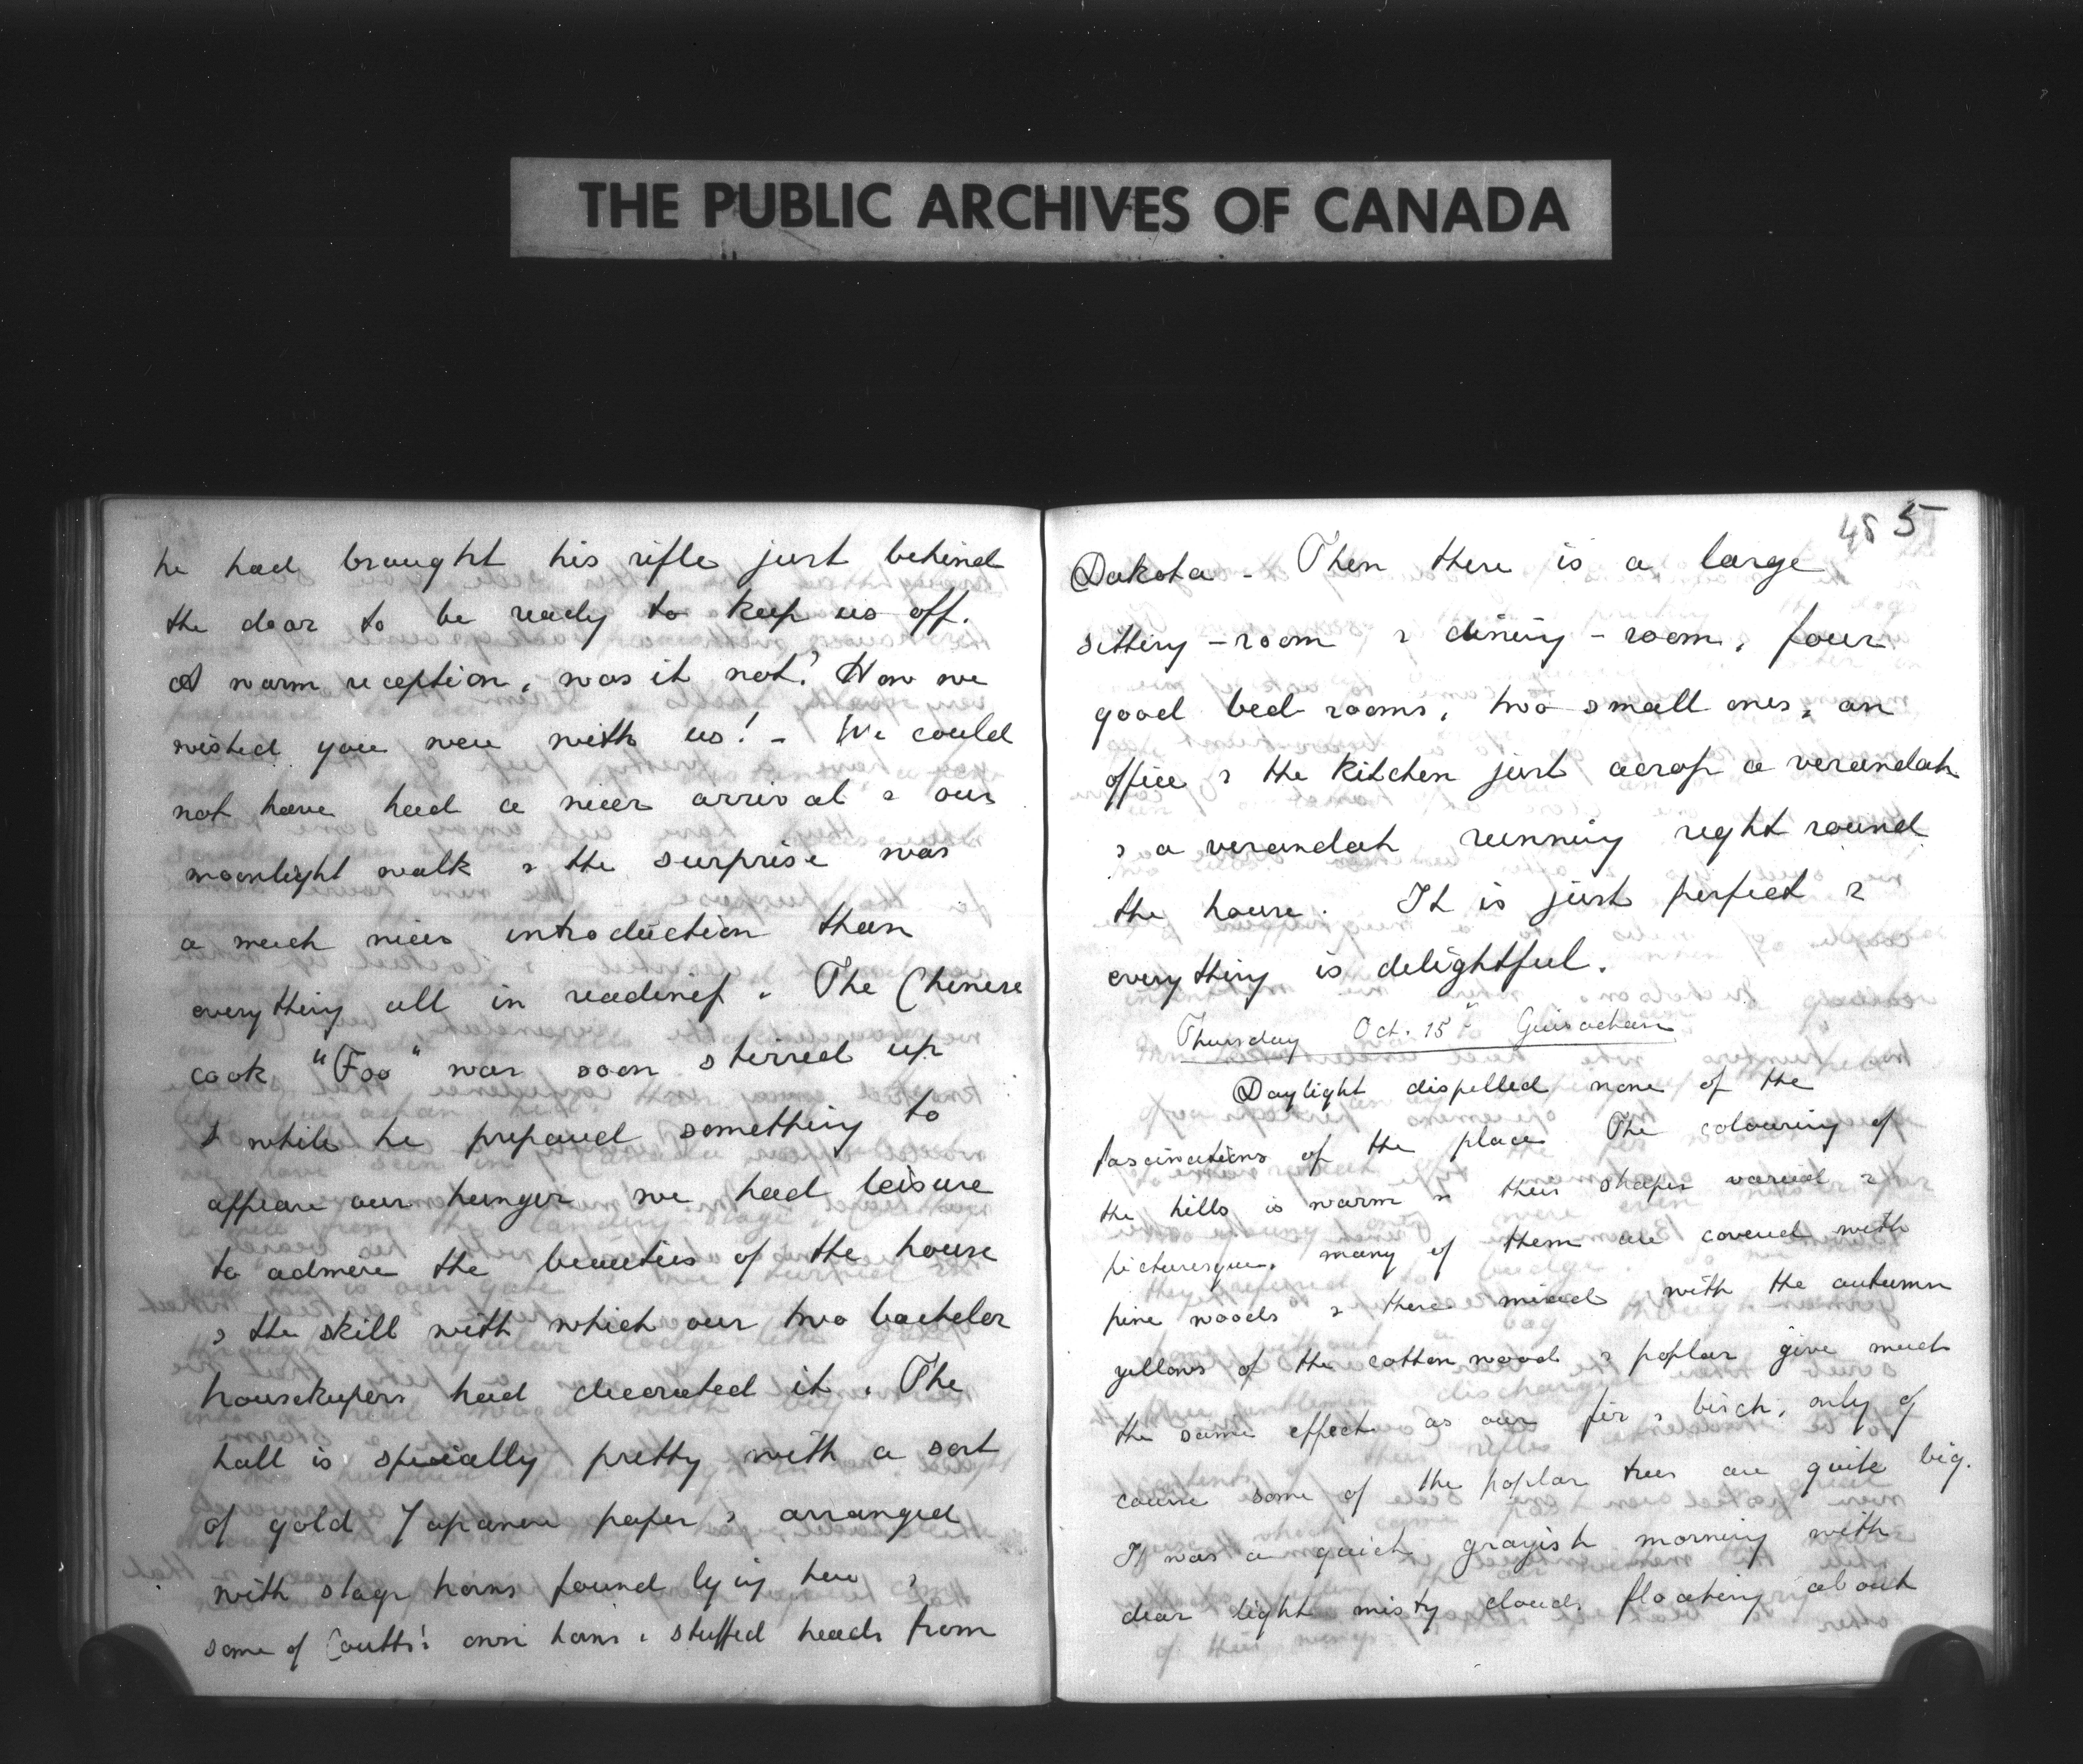 THE PUBLIC ARCHIVES OF CANADA
he had brought his rifle just behind
the door to be ready to keep us off.
A warm reception, was it not? How we
wished you were with us! - We could
not have had a nicer arrival & our
moonlight walk & the surprise was
a much nicer introduction than
everything all in readiness. The Chinese
cook "Foo" was soon stirred up
& while he prepared something to
appease our hunger we had leisure
to admire the beauties of the house
& the skill with which our two bachelor
housekeepers had decorated it. The
hall is specially pretty with a sort
of gold Japanese paper & arranged
with stags horns found lying here &
some of Coutts' own horns & stuffed heads from
485
Dakota - Then there is a large
sitting-room & dining-room, four
good bed rooms, two small ones, an
office & the kitchen just across a verandah
& a verandah running right round
the house. It is just perfect &
everything is delightful.
Thursday Oct. 15th Guisachan
Daylight dispelled none of the
fascinations of the place. The colouring of
the hills is warm & their shapes varied &
picturesque. many of them are covered with
pine woods & these mixed with the autumn
yellows of the cotton wood & poplar give much
the same effect as our fir & birch, only of
course some of the poplar trees are quite big.
It was a quiet grayish morning with
dear light misty clouds floating about